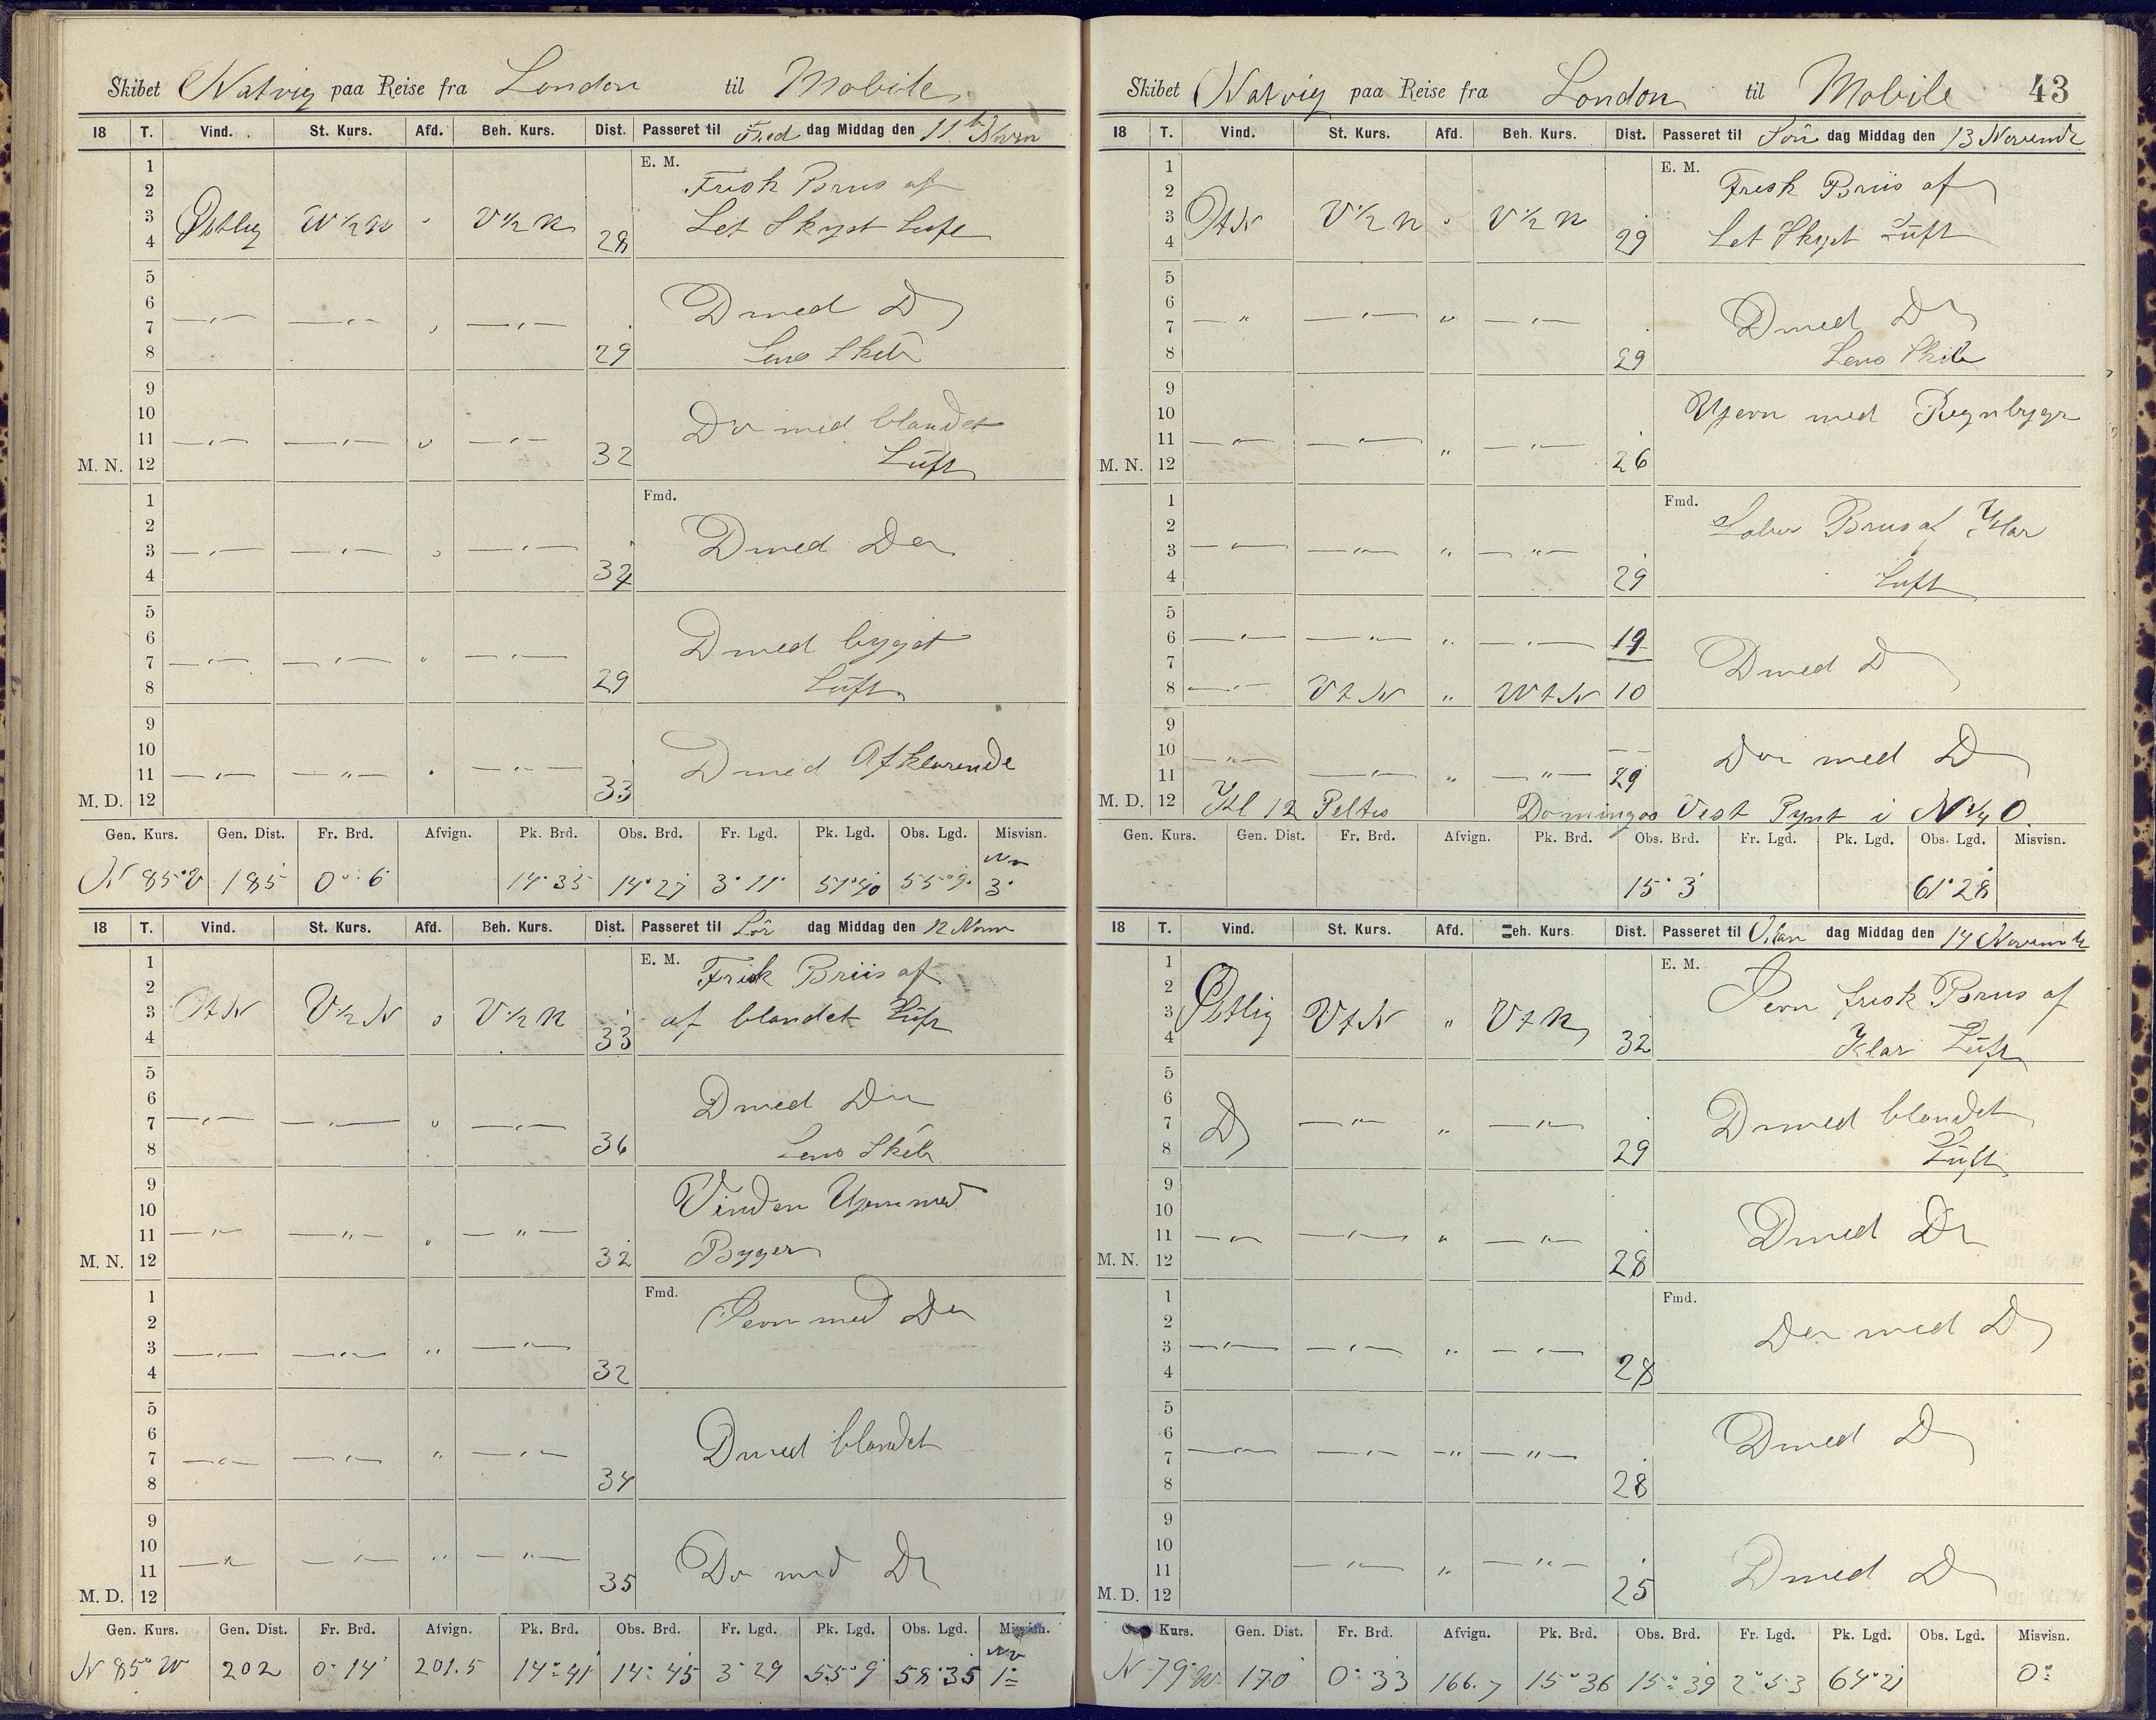 Skibet Natvig paa Reise fra London til Mobile
18 T. Vind. St. Kurs. Afd. Beh. Kurs. Dist. Passeret til Fred dag Middag den 11te Novm
E. M.
1
2 Frisk Briis af
3 Østlig W ½ N " V ½ N Let Skyet Luft
4 28
5
6 D med D
7 —"— —"— " —"—
8 29 Lens Skib
9
10 Do med blandet
11 —"— —"— " —"—
M. N. 12 32 Luft
Fmd.
1
2 D med Do
3 —"— —"— " —"—
4 34
5
6 D med bygget
7 —"— —"— " —"—
8 29 Luft
9
10
11 —"— —"— " —"— D med Afklarende
M. D. 12 33
Gen. Kurs. Gen. Dist. Fr. Brd. Afvign. Pk. Brd. Obs. Brd. Fr. Lgd. Pk. Lgd. Obs. Lgd. Misvisn.
N 85° V 185 0° 6' 14° 33 14° 27 3° 11' 51° 40 55° 9' NV 3°
18 T. Vind. St. Kurs. Afd. Beh. Kurs. Dist. Passeret til Lör dag Middag den 12 Novm
E. M. Frisk Briis af
1
2
3 Ot N V ½ N " V ½ N 33 af blandet Luft
4
5
6 D med Do
7 —"— —"— " —"—
8 36 Lens Skib
9
10 Vinden Ujevn med
11 —"— —"— " —"—
M. N. 12 32 Byger
Fmd.
1
2 Jevn med Do
3 —"— —"— " —"—
4 32
5
6 D med blandet
7 —"— —"— " —"—
8 34
9
10
11 —"— —"— " —"— Do med Do
M. D. 12 35
Gen. Kurs. Gen. Dist. Fr. Brd. Afvign. Pk. Brd. Obs. Brd. Fr. Lgd. Pk. Lgd. Obs. Lgd. Misvisn.
N 85° W 202 0° 14' 201.5 14° 41' 14° 45 3° 29 55° 9' 58° 35 NV 1°
Skibet Natvig paa Reise fra London til Mobile 43
18 T. Vind. St. Kurs. Afd. Beh. Kurs. Dist. Passeret til Sön dag Middag den 13 Novembr
E. M.
1
2 Frisk Briis af
3 Ot N V ½ N " V ½ N
4 29 Let Skyet Luft
5
6 D med Do
7 —"— —"— " —"—
8 29 Lens Skib
9
10 Ujevn med Regnbyger
11 —"— —"— " —"—
M. N. 12 26
Fmd.
1
2 Laber Briis af Klar
3 —"— —"— " —"—
4 29 Luft
5
6 —"— —"— " —"— 19
7 D med D
8 —"— V t N " W t N 10
9
10 —"— Do med D
11 —"— " —"— 29
M. D. 12 Kl 12 Domingos Vest Pynt i N ¼ O.
Gen. Kurs. Gen. Dist. Fr. Brd. Afvign. Pk. Brd. Obs. Brd. Fr. Lgd. Pk. Lgd. Obs. Lgd. Misvisn.
15° 3' 61° 28
18 T. Vind. St. Kurs. Afd. Beh. Kurs. Dist. Passeret til Man dag Middag den 14 Novembr
E. M.
1
2 Jevn frisk Briis af
3 Østlig V t N " V t N
4 32 Klar Luft
5
6 D med blandet
7 D —"— " —"—
8 29 Luft
9
10 D med Do
11 —"— —"— " —"—
M. N. 12 28
Fmd.
1
2 Do med D
3 —"— —"— " —"—
4 28
5
6 D med D
7 —"— —"— —"— —"—
8 28
9
10
11 —"— " —"— D med D
M. D. 12 25
Kurs. Gen. Dist. Fr. Brd. Afvign. Pk. Brd. Obs. Brd. Fr. Lgd. Pk. Lgd. Obs. Lgd. Misvisn.
N 79° W 170 0° 33 166.7 15° 36 15° 39 2° 53 64° 21 0°